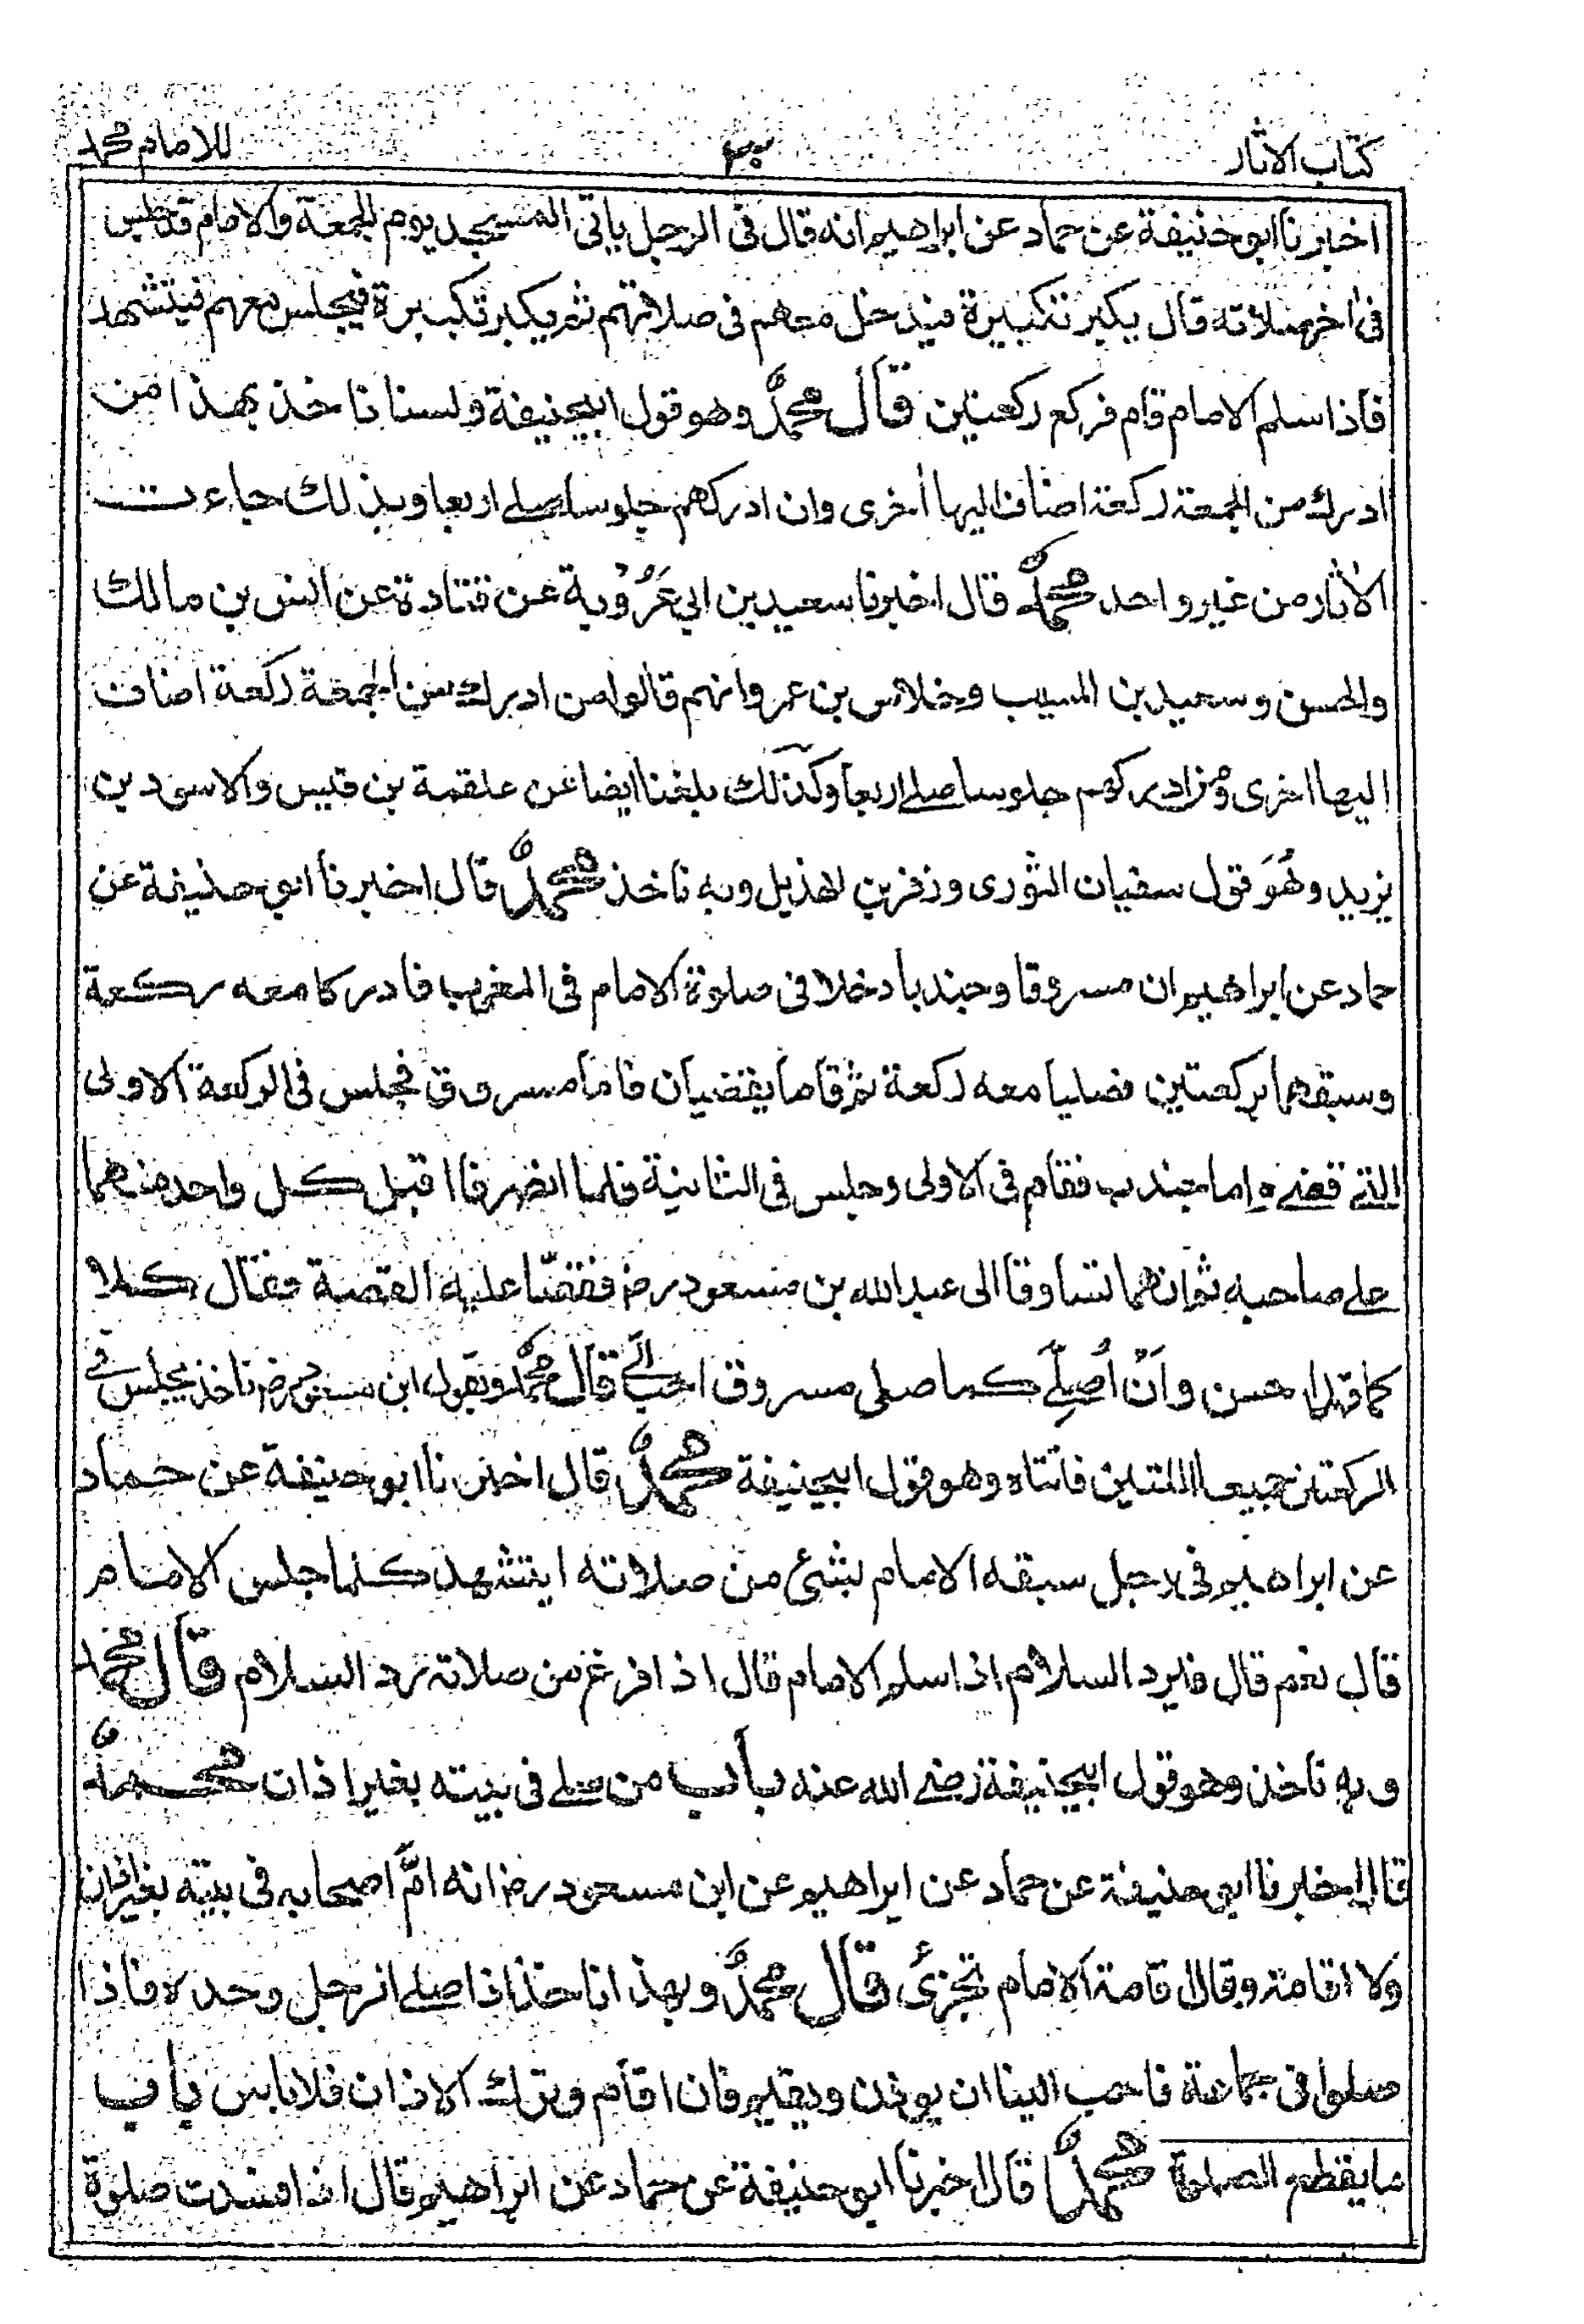 كتاب الاثار
للامام محمد
اخبرنا ابو حنيفة عن حماد عن ابراهيم انه قال فى الرجل ياتى المسجد يوم الجمعة والامام قد جلس
فى اخر صلاته قال يكبر تكبيرة فيدخل معهم فى صلاتهم ثم يكبر تكبيرة فيجلس معهم فيتشهد
فاذا سلم الامام قام فركع ركعتين قال محمد وهو قول ابيحنيفة ولسنا ناخذ بهذا من
ادرك من الجمعة ركعة اضاف اليها اخرى وان ادركهم جلوسا صلے اربعا وبذلك جاءت
الاثار من غير واحد محمد قال اخبرنا سعيد بن ابي عَرُوْبة عن قتادة عن انس بن مالك
والحسن وسعيد بن المسيب وخلاس بن عمرو انهم قالوا من ادرك من الجمعة ركعة اضاف
اليها اخرى ومن ادركهم جلوسا صلے اربعا وكذلك بلغنا ايضا عن علقمة بن قيس والاسود بن
يزيد وهُوَ قول سفيان الثورى وزفر بن الهذيل وبه ناخذ محمدٌ قال اخبرنا ابو حنيفة عن
حماد عن ابراهيم ان مسروقا وجندبا دخلا فى صلوة الامام فى المغرب فادركا معه ركعة
وسبقهما بركعتين فصليا معه ركعة ثم قاما يقضيان فاما مسروق فجلس فى الركعة الاولى
التے قضے واما جندب فقام فى الاولى وجلس فى الثانية فلما انصرفا اقبل كل واحد منهما
علے صاحبه ثم انهما تساوقا الى عبد الله بن مسعود رض فقصّا عليه القصة فقال كلا
كما قد احسن وأنْ اُصلّے كما صلى مسروق احب الَیّ قال محمد وبقول ابن مسعود رض ناخذ يجلس فے
الركعتين جميعا اللتين فاتتاه وهو قول ابيحنيفة محمدٌ قال اخبرنا ابو حنيفة عن حماد
عن ابراهيم فى رجل سبقه الامام بشئ من صلاته ايتشهد كلما جلس الامام
قال نعم قال فيرد السلام اذا سلم الامام قال اذا فرغ من صلاته رد السلام قال محمد
وبه ناخذ وهو قول ابيحنيفة رضے الله عنه باب من صلے فى بيته بغير اذان محمدٌ
قال اخبرنا ابو حنيفة عن حماد عن ابراهيم عن ابن مسعود رض انه امَّ اصحابه فى بيته بغير اذان
ولا اقامة وقال اقامة الامام تجزئ قال محمدٌ وبهذا ناخذ اذا صلے الرجل وحده فاذا
صلوا فى جماعة فاحب الينا ان يوذن ويقيم فان اقام وترك الاذان فلا باس باب
ما يقطع الصلوة محمدٌ قال اخبرنا ابو حنيفة عن حماد عن ابراهيم قال اذا فسدت صلوة